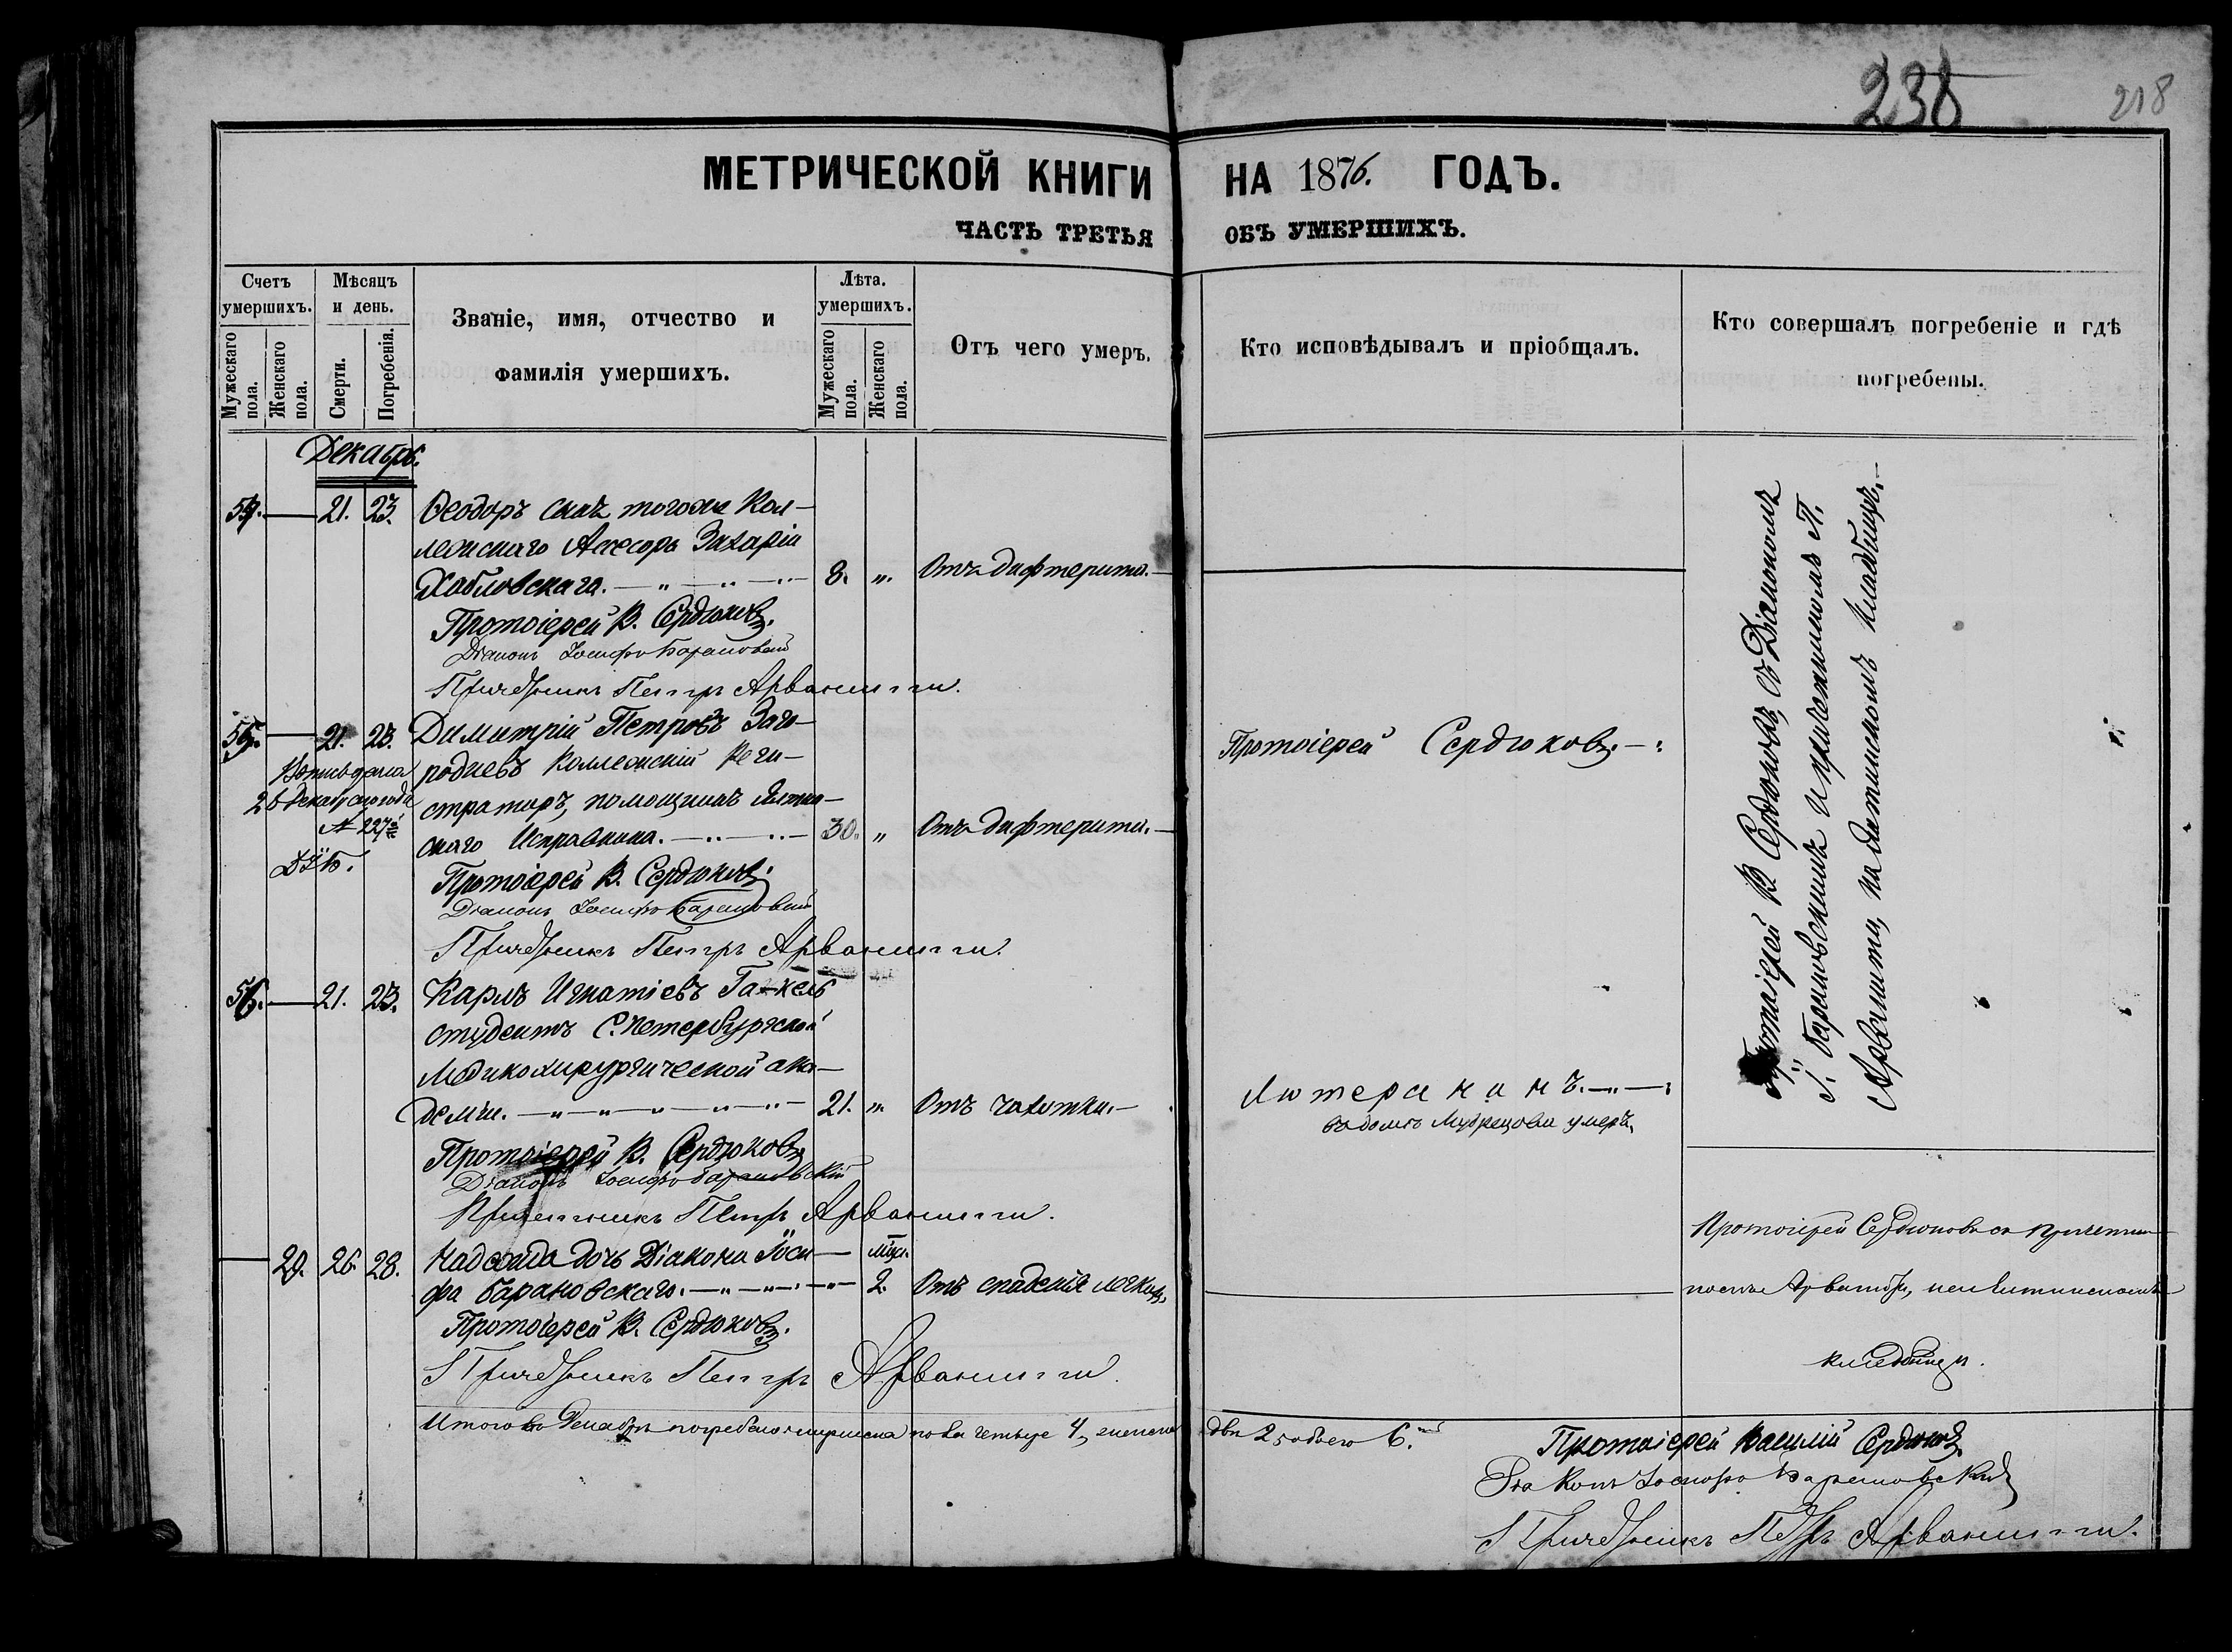 238
218
МЕТРИЧЕСКОЙ КНИГИ НА 1876. ГОДЪ.
ЧАСТЬ ТРЕТЬЯ ОБЪ УМЕРШИХЪ.
Счетъ умершихъ.
Мужескаго пола.
Женскаго пола.
Мѣсяцъ и день.
Смерти.
Погребенія.
Званіе, имя, отчество и
фамилія умершихъ.
Лѣта. умершихъ.
Мужескаго пола.
Женскаго пола.
Отъ чего умеръ.
Кто исповѣдывалъ и пріобщалъ.
Кто совершалъ погребеніе и гдѣ
погребены.
Декабрь.
54. — 21. 23. Ѳеодоръ сынъ тогоже Кол-
лежскаго Ассесора Захарія
Хабловскаго. 8. „ Отъ дифтерита.
Протоіерей В. Сердюковъ.
Діаконъ Іосифъ Барановскій
Причетникъ Петръ Арванитти.
55. — 21. 23. Димитрій Петровъ Заго-
родневъ Коллежскій Реги-
страторъ, помощникъ Ялтин-
скаго Исправника. 30. „ Отъ дифтерита.
26 Декабря
№ 227
Протоіерей В. Сердюковъ.
Діаконъ Іосифъ Барановскій
Причетникъ Петръ Арванитти.
Протоіерей Сердюковъ.
56. — 21. 23. Карлъ Игнатіевъ Га-кель
студентъ С.Петербургской
Медикохирургической ака-
деміи. 21. „ Отъ чахотки.
Лютеранинъ.
въ домѣ Мудрецова умеръ.
Протоіерей В. Сердюковъ
Діаконъ Іосифъ Барановскій
Причетникъ Петръ Арванитти.
Протоіерей В Сердюковъ, съ Діакономъ
І. Барановскимъ и причетникомъ П.
Арванитти, на Аутинскомъ кладбищѣ.
— 29. 26. 28. Надежда дочь Діакона Іоси-
фа Барановскаго. 2. Отъ спаденія легкихъ.
Протоіерей В. Сердюковъ.
Причетникъ Петръ Арванитти.
Протоіерей Сердюковъ съ причетни-
кладбищѣ.
Итого въ Декабрѣ погребено мужеска пола четыре 4, женска двѣ 2, обоего 6.
Протоіерей Василій Сердюковъ.
Діаконъ Іосифъ Барановскій
Причетникъ Петръ Арванитти.